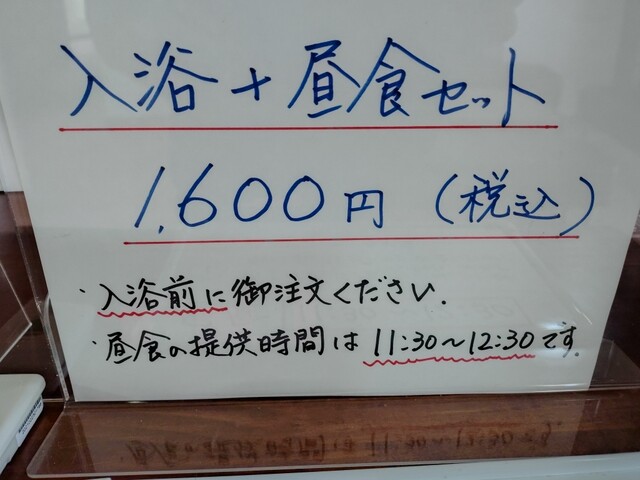 入浴+昼食セット
1,600円(税込)
・入浴前に御注文ください.
・昼食の提供時間は11:30~12:30です。